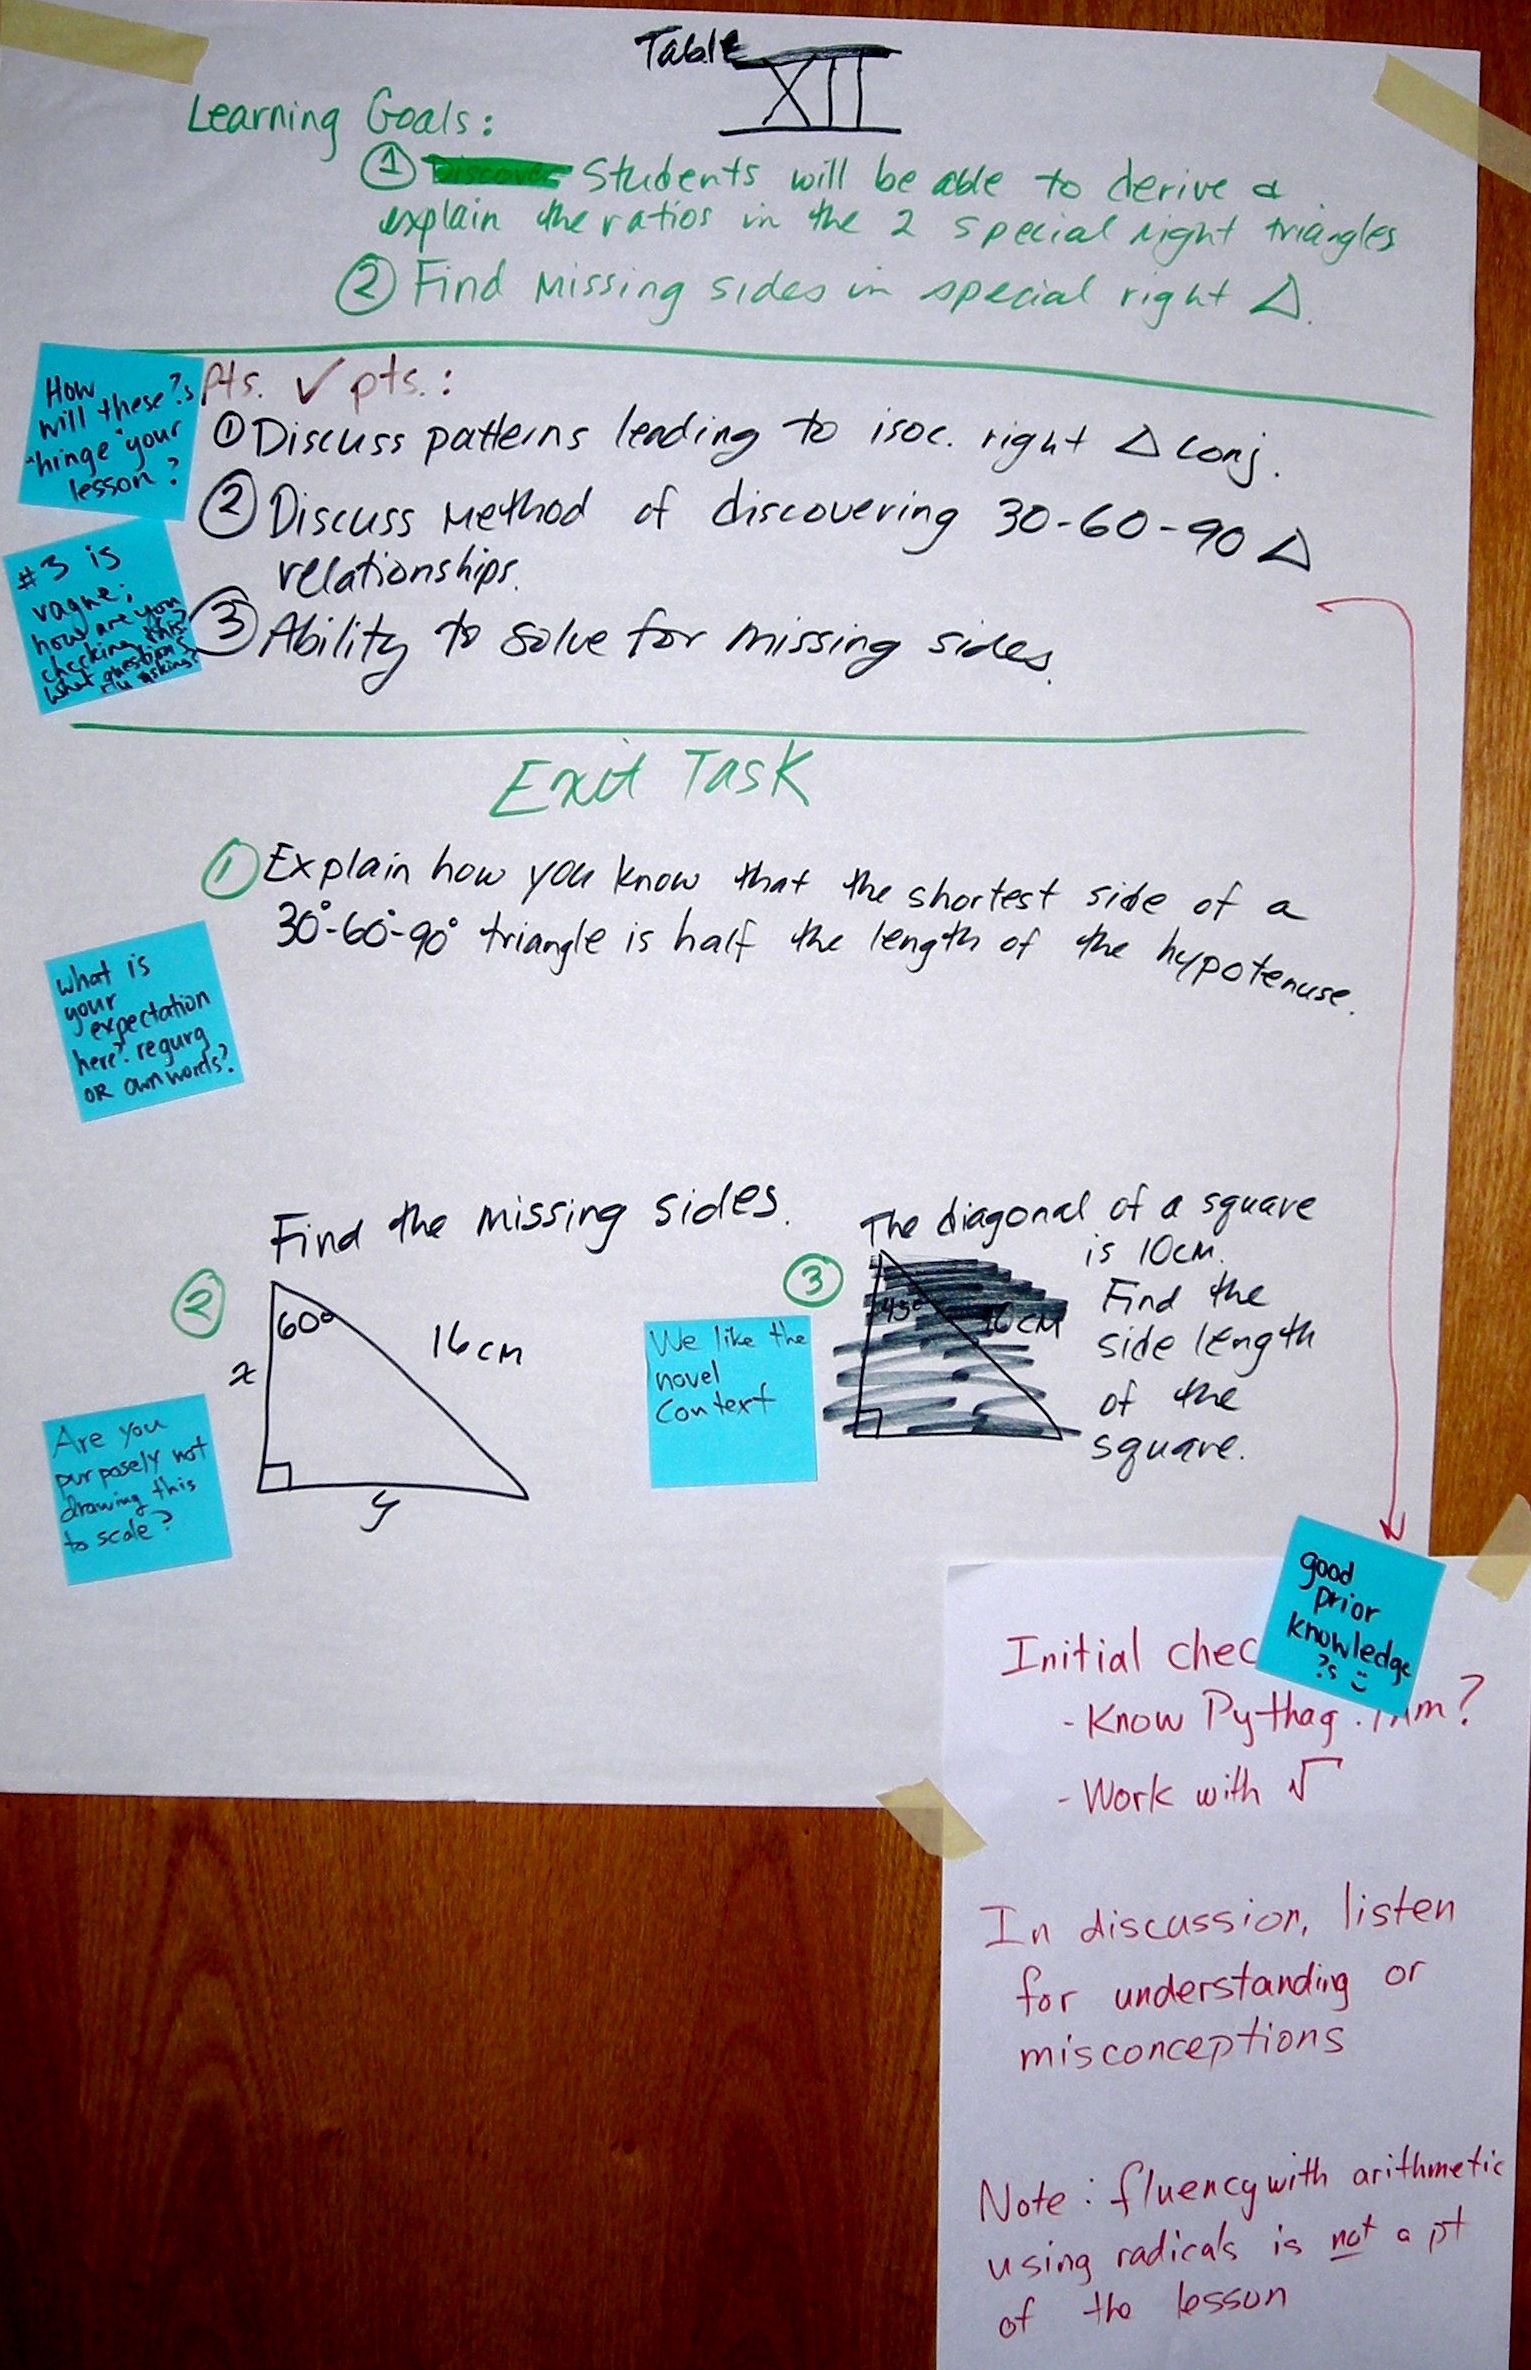 Table XII
Learning Goals:
① Discover Students will be able to derive &
explain the ratios in the 2 special right triangles
② Find missing sides in special right △.
Pts. ✓ pts.:
① Discuss patterns leading to isoc. right △ conj.
② Discuss method of discovering 30-60-90 △
relationships.
③ Ability to solve for missing sides.
How
will these ?s
"hinge" your
lesson?
#3 is
vague;
how are you
checking this?
What questions
r u asking?
Exit Task
① Explain how you know that the shortest side of a
30°-60°-90° triangle is half the length of the hypotenuse.
What is
your
expectation
here? regurg
OR own words?
Find the missing sides.
②
60°
16cm
x
y
Are you
purposely not
drawing this
to scale?
③
The diagonal of a square
is 10cm.
Find the
side length
of the
square.
45°
16cm
We like the
novel
context
good
prior
knowledge
?s
Initial chec
- Know Pythag. Thm?
- Work with √
In discussion, listen
for understanding or
misconceptions
Note: fluency with arithmetic
using radicals is not a pt
of the lesson